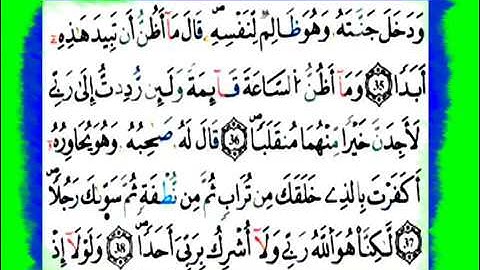 وَدَخَلَ جَنَّتَهُۥ وَهُوَ ظَالِمٌ لِّنَفْسِهِۦ قَالَ مَآ أَظُنُّ أَن تَبِيدَ هَٰذِهِۦٓ
أَبَدًا ٣٥ وَمَآ أَظُنُّ ٱلسَّاعَةَ قَآئِمَةً وَلَئِن رُّدِدتُّ إِلَىٰ رَبِّي
لَأَجِدَنَّ خَيْرًا مِّنْهُمَا مُنقَلَبًا ٣٦ قَالَ لَهُۥ صَاحِبُهُۥ وَهُوَ يُحَاوِرُهُۥٓ
أَكَفَرْتَ بِالَّذِي خَلَقَكَ مِن تُرَابٍ ثُمَّ مِن نُّطْفَةٍ ثُمَّ سَوَّىٰكَ رَجُلًا
٣٧ لَّٰكِنَّا هُوَ ٱللَّهُ رَبِّي وَلَآ أُشْرِكُ بِرَبِّيٓ أَحَدًا ٣٨ وَلَوْلَآ إِذْ